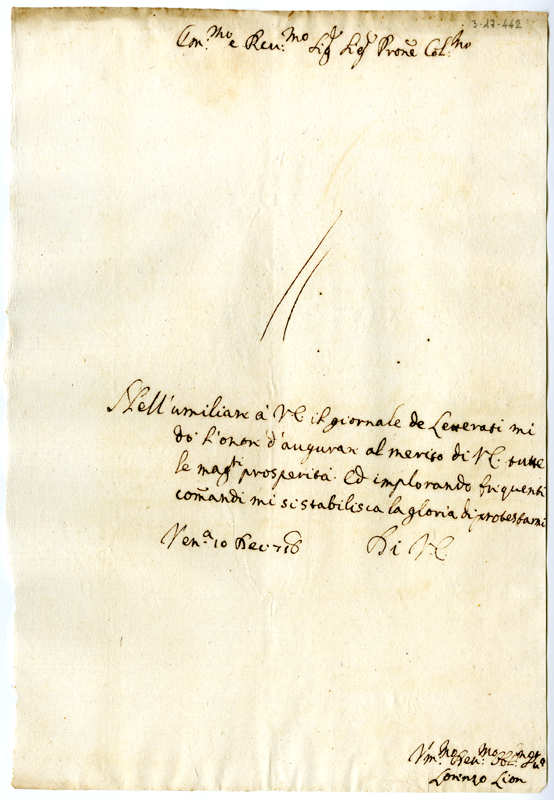 3-17-442
Em.mo e Rev.mo Sig.r Sig.r Prone Col.mo
Nell'umiliare à VE il giornale de Letterati mi
dò l'onor d'augurar al merito di VE tutte
le magri prosperità. Ed implorando frequenti
comandi mi si stabilisca la gloria di protestarmi
Ven.a 10 Dec. 716 Di VE
Um.mo Dev.mo
Lorenzo Lion